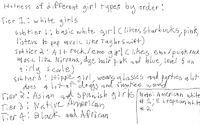 Hotness of different girl types by order:
Tier 1: white girls
subtier 1: basic white girl (likes starbucks, pink,
listens to pop music like Taylor Swift)
subtier 2: Alt rock/emo girl (likes emo/punk rock
music like Nirvana, dye half pink and blue, level 5 on
girly scale)
subtier 3: Hippie girl, wears glasses and
a lot of dogs and
Tier 2: Asian and Spanish girls
Tier 3: Native American
Tier 4: Black and African
Note: American white
is 1, European white
is 2.